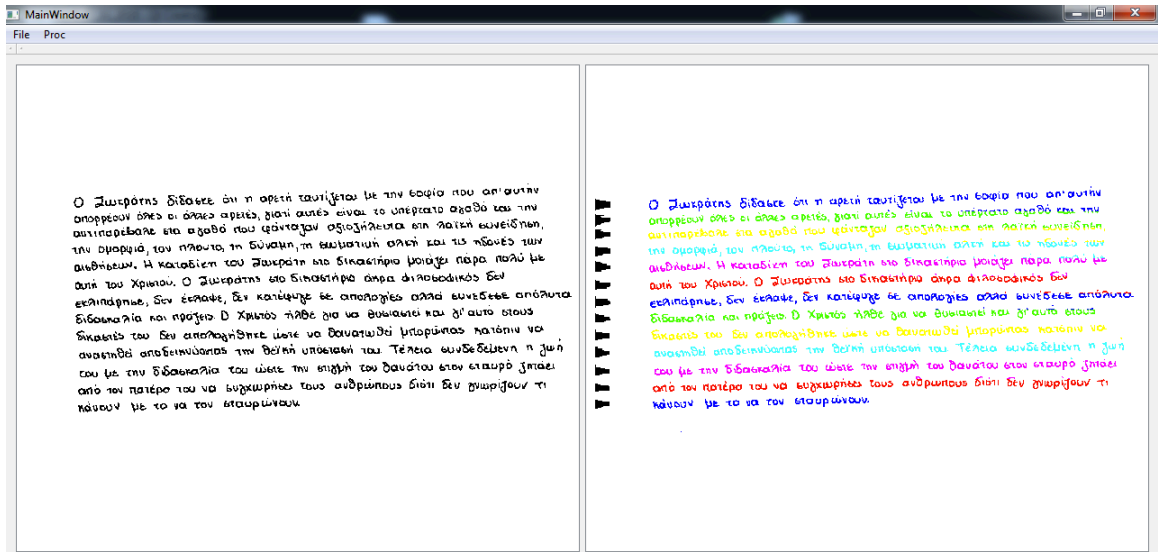 MainWindow
File Proc
Ο Σωκράτης δίδασκε ότι η αρετή ταυτίζεται με την σοφία που απ' αυτήν
απορρέουν όλες οι άλλες αρετές, γιατί αυτές είναι το υπέρτατο αγαθό και την
αντιπαρέβαλε στα αγαθά που φάνταζαν αξιοζήλευτα στη λαϊκή συνείδηση,
την ομορφιά, τον πλούτο, τη δύναμη, τη σωματική αλκή και τις ηδονές των
αισθήσεων. Η καταδίκη του Σωκράτη στο δικαστήριο μοιάζει πάρα πολύ με
αυτή του Χριστού. Ο Σωκράτης στο δικαστήριο άπρα φιλοσοφικός δεν
εκλιπάρησε, δεν έκλαψε, δεν κατέφυγε σε απολογίες αλλά συνέδεσε απόλυτα
διδασκαλία και πράξεις. Ο Χριστός ήλθε για να θυσιαστεί και γι' αυτό στους
δικαστές του δεν απολογήθηκε ώστε να θανατωθεί μπορώντας κατόπιν να
αναστηθεί αποδεικνύοντας την θεϊκή υπόσταση του. Τέλεια συνδεδεμένη η ζωή
του με την διδασκαλία του ώστε την στιγμή του θανάτου στον σταυρό ζητάει
από τον πατέρα του να συγχωρήσει τους ανθρώπους διότι δεν γνωρίζουν τι
κάνουν με το να τον σταυρώνουν.
Ο Σωκράτης δίδασκε ότι η αρετή ταυτίζεται με την σοφία που απ' αυτήν
απορρέουν όλες οι άλλες αρετές, γιατί αυτές είναι το υπέρτατο αγαθό και την
αντιπαρέβαλε στα αγαθά που φάνταζαν αξιοζήλευτα στη λαϊκή συνείδηση,
την ομορφιά, τον πλούτο, τη δύναμη, τη σωματική αλκή και τις ηδονές των
αισθήσεων. Η καταδίκη του Σωκράτη στο δικαστήριο μοιάζει πάρα πολύ με
αυτή του Χριστού. Ο Σωκράτης στο δικαστήριο άπρα φιλοσοφικός δεν
εκλιπάρησε, δεν έκλαψε, δεν κατέφυγε σε απολογίες αλλά συνέδεσε απόλυτα
διδασκαλία και πράξεις. Ο Χριστός ήλθε για να θυσιαστεί και γι' αυτό στους
δικαστές του δεν απολογήθηκε ώστε να θανατωθεί μπορώντας κατόπιν να
αναστηθεί αποδεικνύοντας την θεϊκή υπόσταση του. Τέλεια συνδεδεμένη η ζωή
του με την διδασκαλία του ώστε την στιγμή του θανάτου στον σταυρό ζητάει
από τον πατέρα του να συγχωρήσει τους ανθρώπους διότι δεν γνωρίζουν τι
κάνουν με το να τον σταυρώνουν.